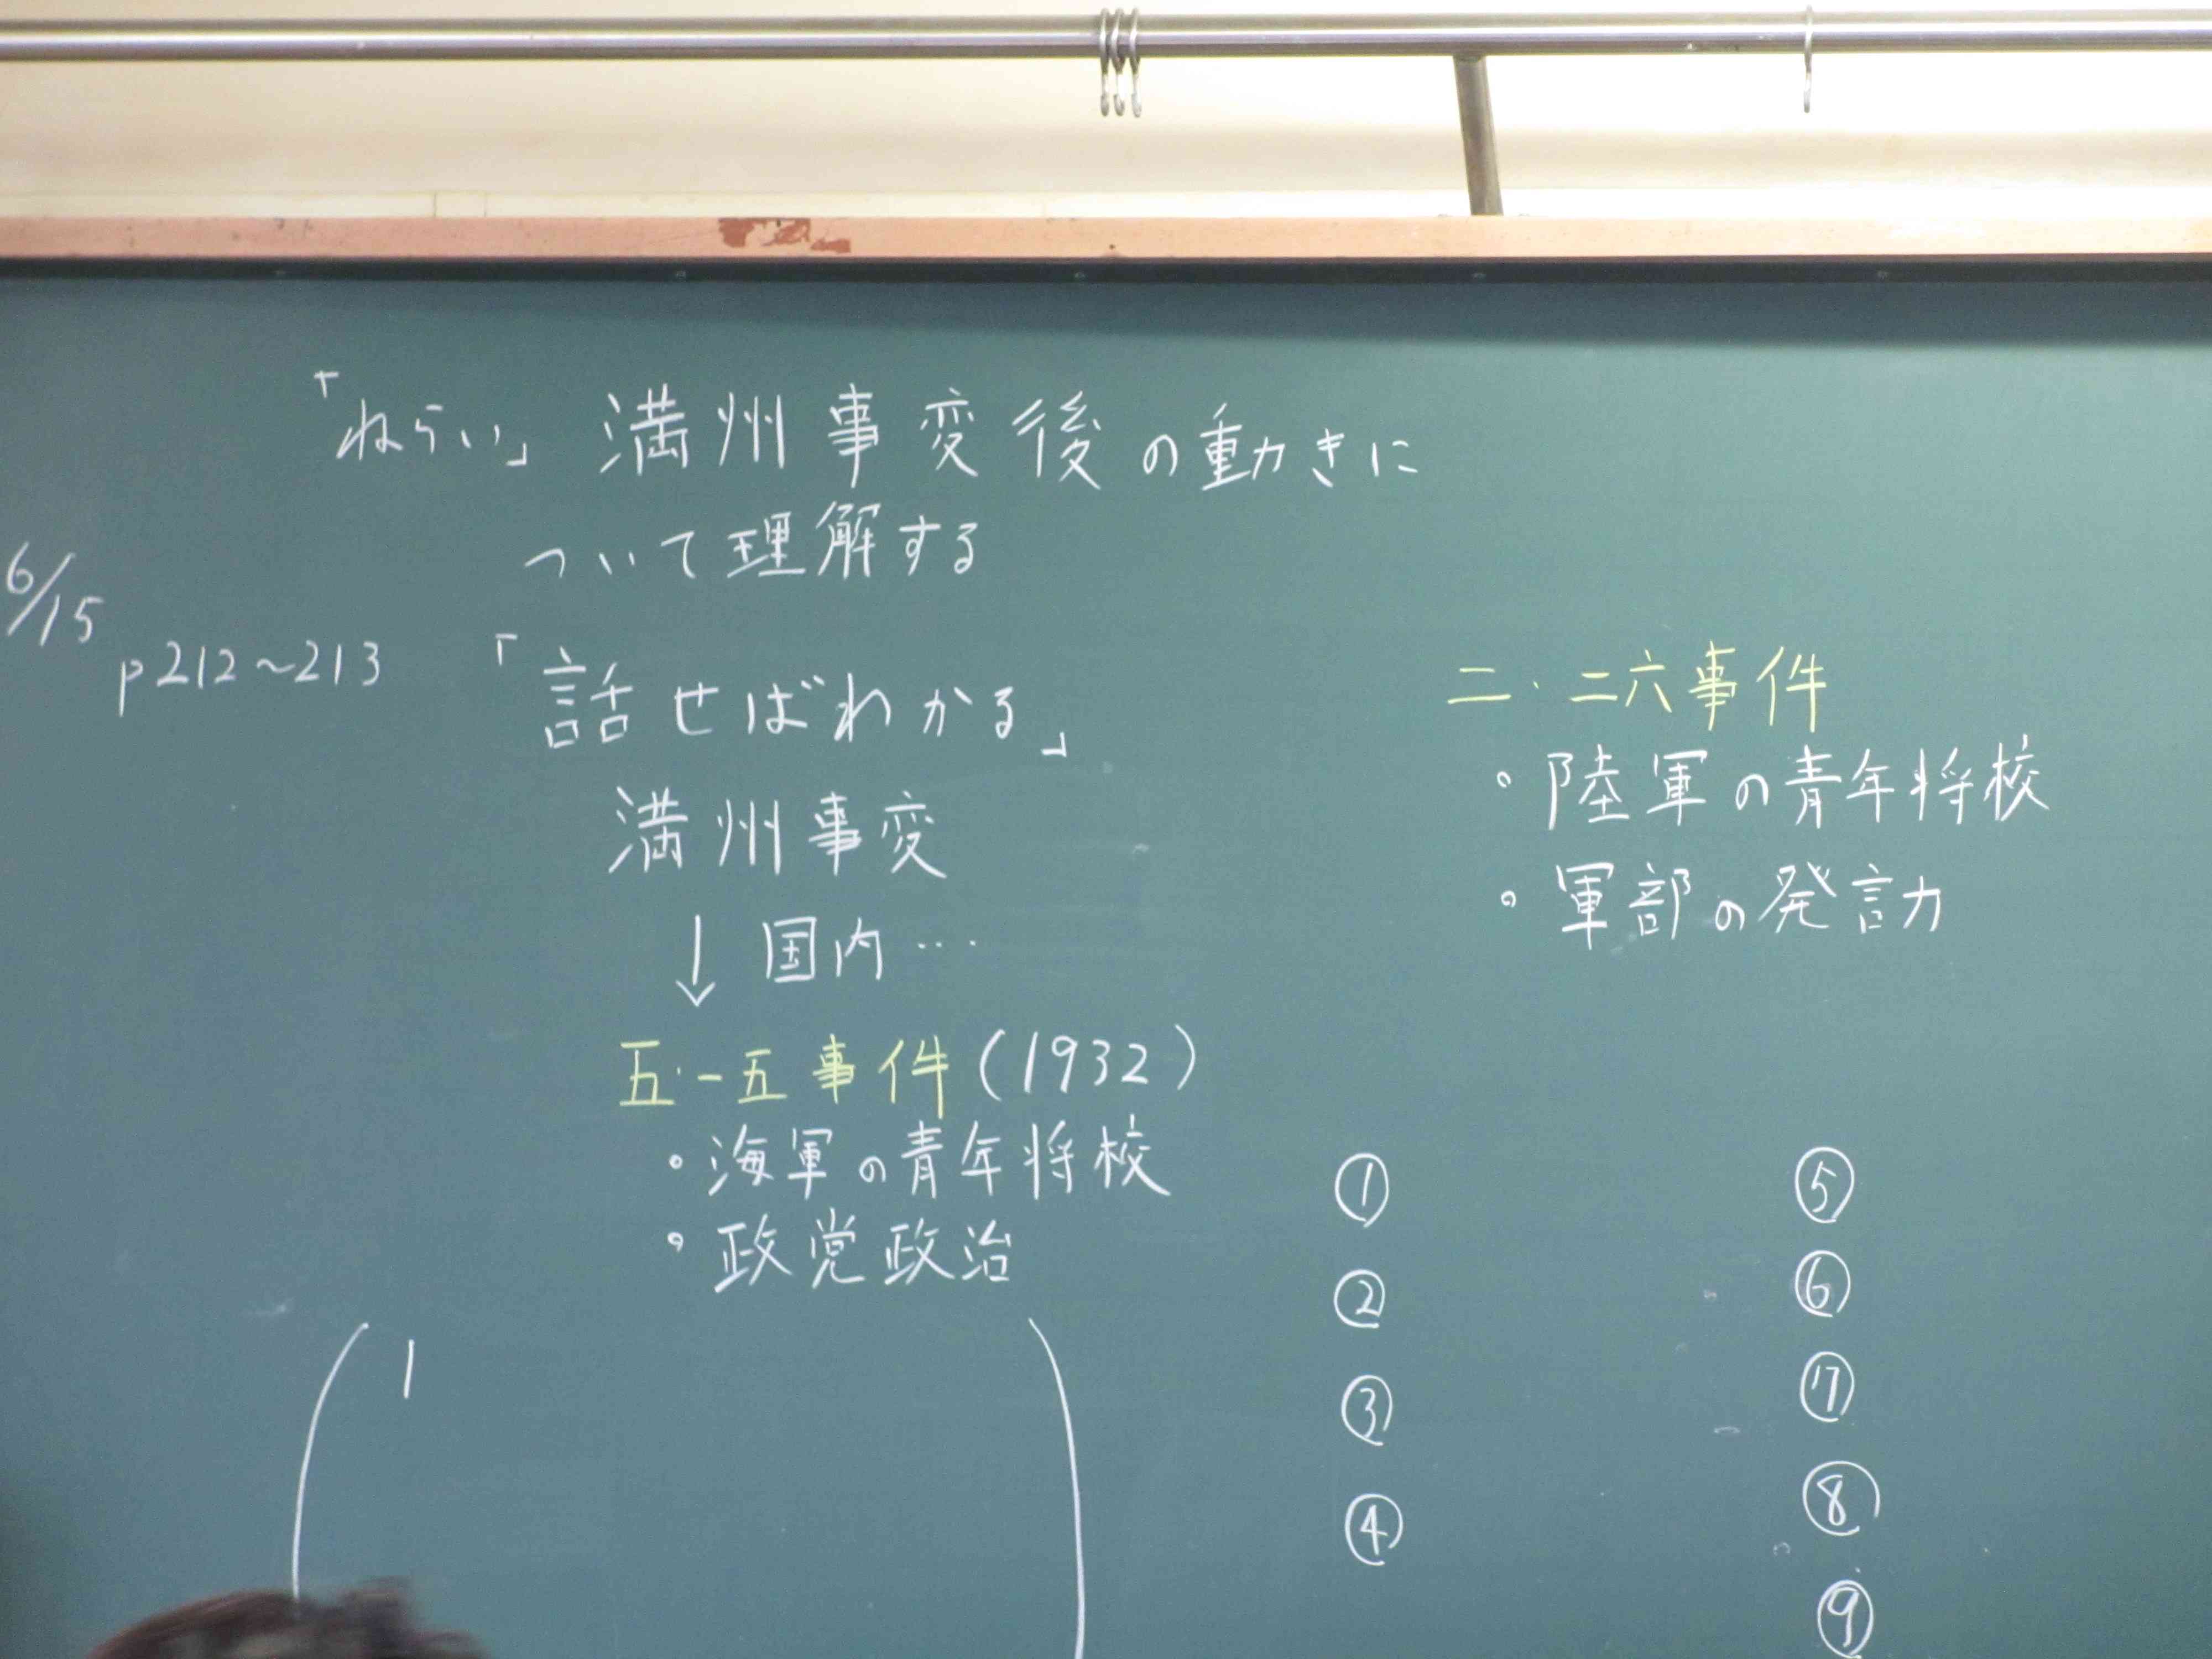 「ねらい」満州事変後の動きに
ついて理解する
6/15
p212~213
「話せばわかる」
満州事変
↓ 国内…
五・一五事件(1932)
・海軍の青年将校
・政党政治
( 1 )
二・二六事件
・陸軍の青年将校
・軍部の発言力
①
②
③
④
⑤
⑥
⑦
⑧
⑨